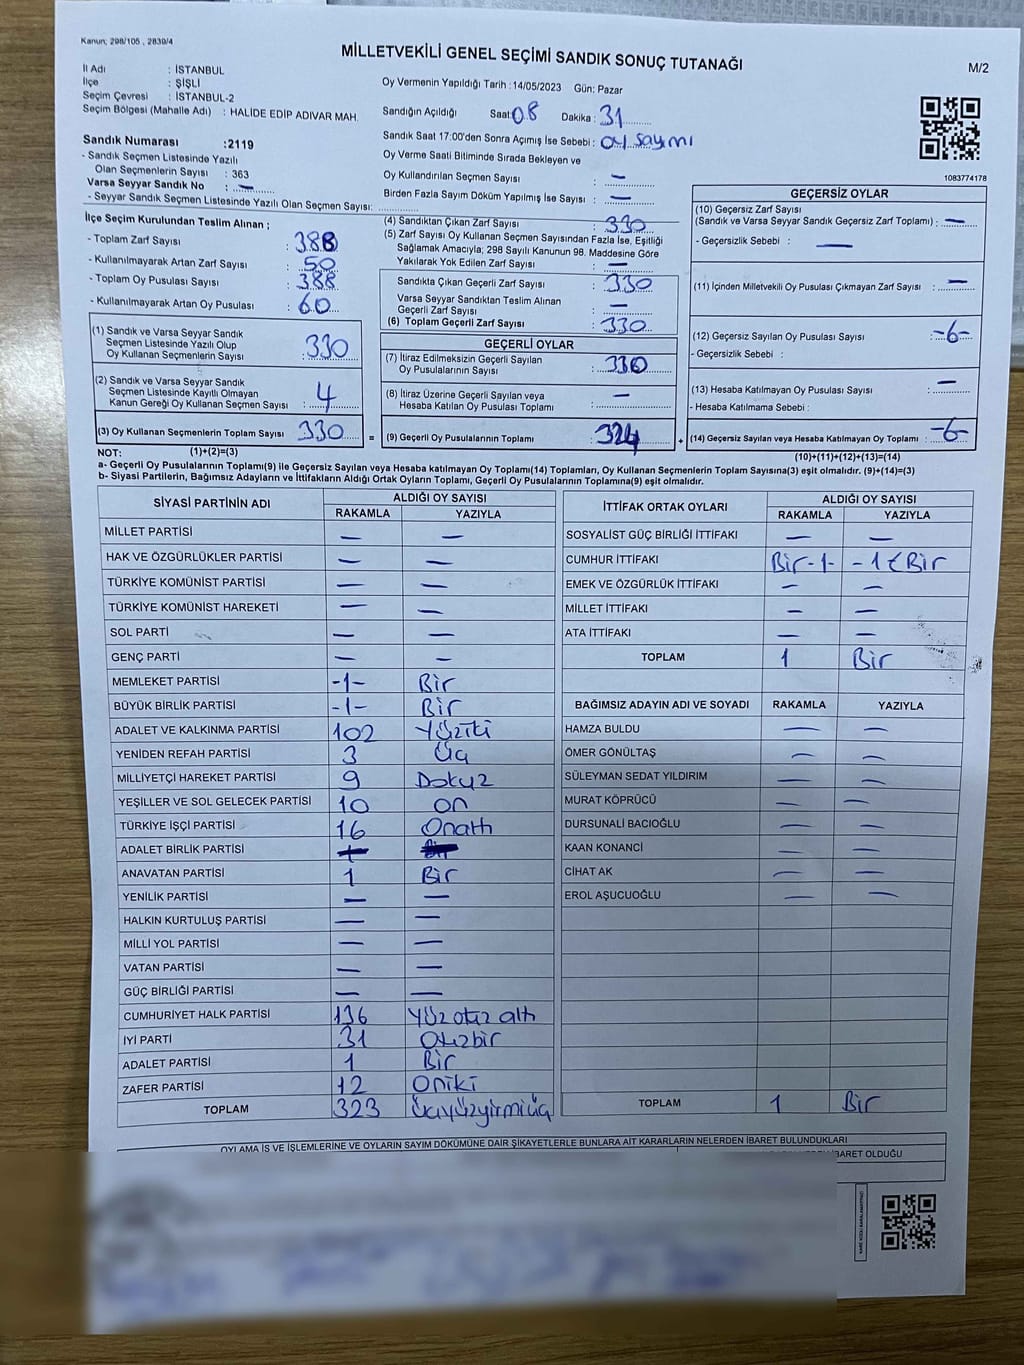 Kanun; 298/105 , 2839/4
MİLLETVEKİLİ GENEL SEÇİMİ SANDIK SONUÇ TUTANAĞI
M/2
İl Adı : İSTANBUL
İlçe : ŞİŞLİ
Seçim Çevresi : İSTANBUL-2
Seçim Bölgesi (Mahalle Adı) : HALİDE EDİP ADIVAR MAH.
Sandık Numarası :2119
- Sandık Seçmen Listesinde Yazılı
Olan Seçmenlerin Sayısı : 363
Varsa Seyyar Sandık No : —
- Seyyar Sandık Seçmen Listesinde Yazılı Olan Seçmen Sayısı:
Oy Vermenin Yapıldığı Tarih :14/05/2023 Gün: Pazar
Sandığın Açıldığı Saat: 08 Dakika : 31
Sandık Saat 17:00'den Sonra Açımış İse Sebebi : oy sayımı
Oy Verme Saati Bitiminde Sırada Bekleyen ve
Oy Kullandırılan Seçmen Sayısı : —
Birden Fazla Sayım Döküm Yapılmış İse Sayısı : —
1083774178
İlçe Seçim Kurulundan Teslim Alınan ;
- Toplam Zarf Sayısı : 388
- Kullanılmayarak Artan Zarf Sayısı : 50
- Toplam Oy Pusulası Sayısı : 388
- Kullanılmayarak Artan Oy Pusulası : 60
(1) Sandık ve Varsa Seyyar Sandık
Seçmen Listesinde Yazılı Olup
Oy Kullanan Seçmenlerin Sayısı : 330
(2) Sandık ve Varsa Seyyar Sandık
Seçmen Listesinde Kayıtlı Olmayan
Kanun Gereği Oy Kullanan Seçmen Sayısı : 4
(3) Oy Kullanan Seçmenlerin Toplam Sayısı : 330
(4) Sandıktan Çıkan Zarf Sayısı : 330
(5) Zarf Sayısı Oy Kullanan Seçmen Sayısından Fazla İse, Eşitliği
Sağlamak Amacıyla; 298 Sayılı Kanunun 98. Maddesine Göre
Yakılarak Yok Edilen Zarf Sayısı : —
Sandıkta Çıkan Geçerli Zarf Sayısı : 330
Varsa Seyyar Sandıktan Teslim Alınan
Geçerli Zarf Sayısı : —
(6) Toplam Geçerli Zarf Sayısı : 330
GEÇERLİ OYLAR
(7) İtiraz Edilmeksizin Geçerli Sayılan
Oy Pusulalarının Sayısı : 330
(8) İtiraz Üzerine Geçerli Sayılan veya
Hesaba Katılan Oy Pusulası Toplamı : —
= (9) Geçerli Oy Pusulalarının Toplamı : 324 +
GEÇERSİZ OYLAR
(10) Geçersiz Zarf Sayısı
(Sandık ve Varsa Seyyar Sandık Geçersiz Zarf Toplamı) : —
- Geçersizlik Sebebi : —
(11) İçinden Milletvekili Oy Pusulası Çıkmayan Zarf Sayısı : —
(12) Geçersiz Sayılan Oy Pusulası Sayısı : -6-
- Geçersizlik Sebebi :
(13) Hesaba Katılmayan Oy Pusulası Sayısı : —
- Hesaba Katılmama Sebebi :
(14) Geçersiz Sayılan veya Hesaba Katılmayan Oy Toplamı : -6-
NOT: (1)+(2)=(3)
(10)+(11)+(12)+(13)=(14)
a- Geçerli Oy Pusulalarının Toplamı(9) ile Geçersiz Sayılan veya Hesaba katılmayan Oy Toplamı(14) Toplamları, Oy Kullanan Seçmenlerin Toplam Sayısına(3) eşit olmalıdır. (9)+(14)=(3)
b- Siyasi Partilerin, Bağımsız Adayların ve İttifakların Aldığı Ortak Oyların Toplamı, Geçerli Oy Pusulalarının Toplamına(9) eşit olmalıdır.
SİYASİ PARTİNİN ADI ALDIĞI OY SAYISI
RAKAMLA YAZIYLA
MİLLET PARTİSİ — —
HAK VE ÖZGÜRLÜKLER PARTİSİ — —
TÜRKİYE KOMÜNİST PARTİSİ — —
TÜRKİYE KOMÜNİST HAREKETİ — —
SOL PARTİ — —
GENÇ PARTİ — —
MEMLEKET PARTİSİ -1- Bir
BÜYÜK BİRLİK PARTİSİ -1- Bir
ADALET VE KALKINMA PARTİSİ 102 Yüziki
YENİDEN REFAH PARTİSİ 3 Üç
MİLLİYETÇİ HAREKET PARTİSİ 9 Dokuz
YEŞİLLER VE SOL GELECEK PARTİSİ 10 on
TÜRKİYE İŞÇİ PARTİSİ 16 Onaltı
ADALET BİRLİK PARTİSİ
ANAVATAN PARTİSİ 1 Bir
YENİLİK PARTİSİ — —
HALKIN KURTULUŞ PARTİSİ — —
MİLLİ YOL PARTİSİ — —
VATAN PARTİSİ — —
GÜÇ BİRLİĞİ PARTİSİ — —
CUMHURİYET HALK PARTİSİ 136 Yüz otuz altı
İYİ PARTİ 31 Otuzbir
ADALET PARTİSİ 1 Bir
ZAFER PARTİSİ 12 Oniki
TOPLAM 323 üçyüzyirmiüç
İTTİFAK ORTAK OYLARI ALDIĞI OY SAYISI
RAKAMLA YAZIYLA
SOSYALİST GÜÇ BİRLİĞİ İTTİFAKI — —
CUMHUR İTTİFAKI Bir -1- - 1 Bir
EMEK VE ÖZGÜRLÜK İTTİFAKI — —
MİLLET İTTİFAKI — —
ATA İTTİFAKI — —
TOPLAM 1 Bir
BAĞIMSIZ ADAYIN ADI VE SOYADI RAKAMLA YAZIYLA
HAMZA BULDU — —
ÖMER GÖNÜLTAŞ — —
SÜLEYMAN SEDAT YILDIRIM — —
MURAT KÖPRÜCÜ — —
DURSUNALİ BACIOĞLU — —
KAAN KONANCİ — —
CİHAT AK — —
EROL AŞUCUOĞLU — —
TOPLAM 1 Bir
OYLAMA İŞ VE İŞLEMLERİNE VE OYLARIN SAYIM DÖKÜMÜNE DAİR ŞİKAYETLERLE BUNLARA AİT KARARLARIN NELERDEN İBARET BULUNDUKLARI
İBARET OLDUĞU